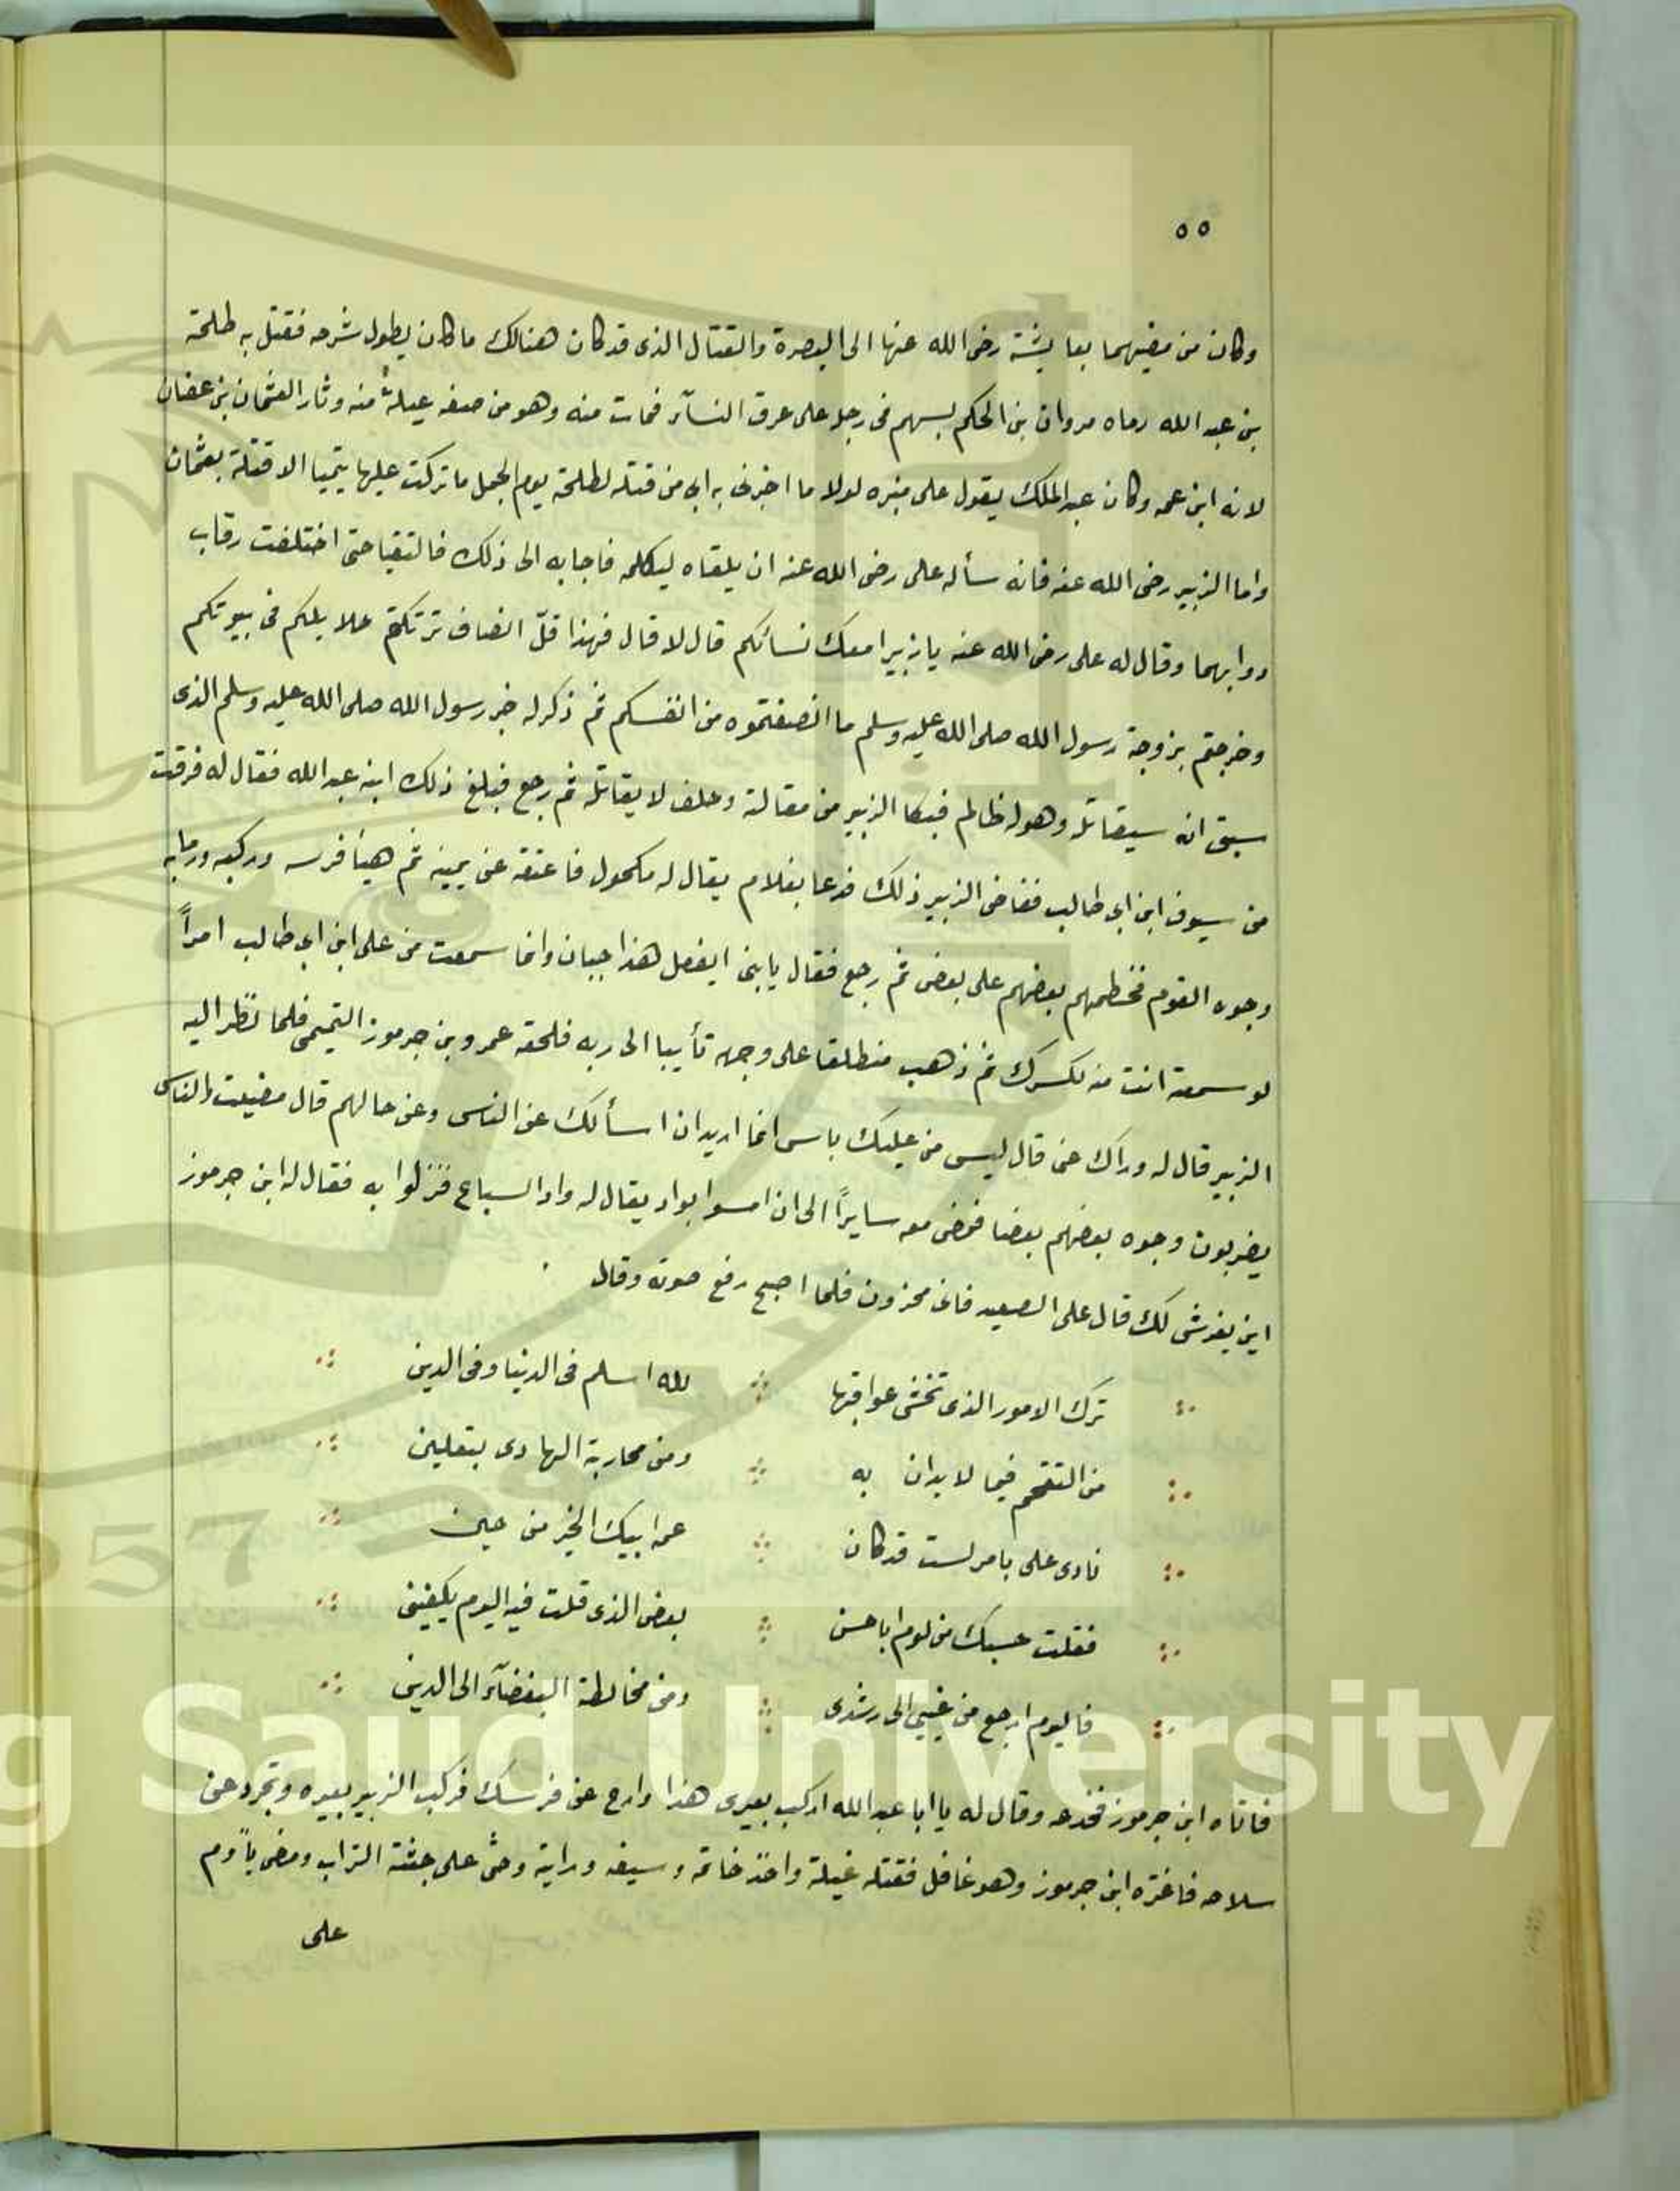 ٥٥
وكان من مضيهما بعايشة رضى الله عنها الى البصرة والقتال الذى قد كان هنالك ما كان يطول شرحه فقتل به طلحة
بن عبد الله رماه مروان بن الحكم بسهم فى رجل على عرق النسآء فمات منه وهو من صفه غيلةً منه وثار لعثمان بن عفان
لانه ابن عمه وكان عبد الملك يقول على منبره لولا ما اخبرنى به ابى من قتله لطلحة يوم الجمل ما تركت عليها يتيميا الا قتلة بعثمان
واما الزبير رضى الله عنه فانه سأله على رضى الله عنه ان يلقاه ليكلمه فاجابه الى ذلك فالتقيا حتى اختلفت رقاب
دوابهما وقال له على رضى الله عنه يا زبير امعك نسائكم قال لا قال فهذا قلّ انصاف تركتم حلايلكم فى بيوتكم
وخرجتم بزوجة رسول الله صلى الله عليه وسلم ما انصفتموه من انفسكم ثم ذكر له خبر رسول الله صلى الله عليه وسلم الذى
سبق انه سيقاتله وهو له ظالم فبكا الزبير من مقالة وحلف لا يقاتله ثم رجع فبلغ ذلك ابنه عبد الله فقال له فرقت
من سيوف ابن ابى طالب فغاض الزبير ذلك فدعا بغلام يقال له مكحول فاعتقه عن يمينه ثم هيأ فرسه وركبه ورما به
وجوه القوم فخطمهم بعضهم على بعض ثم رجع فقال يا بنى ايفعل هذا جبان وانما سمعت من على ابن ابى طالب امراً
لو سمعته انت منه لكسرك ثم ذهب منطلقا على وجهه تأيبا الى ربه فلحقه عمرو بن جرموز التميمى فلما نظر اليه
الزبير قال له وراك عنى قال ليس منى عليك باس انما اريد ان اسألك عن الناس وعن حالهم قال مضيت والناس
يضربون وجوه بعضهم بعضا فمضى معه سايراً الى ان امسوا بواد يقال له واد السباع فنزلوا به فقال له ابن جرموز
اين يفرش لك قال على الصعيد فانى محزون فلما اصبح رفع صوته وقال
ترك الامور الذى تخشى عواقبها لله اسلم فى الدنيا وفى الدين
من التقحم فيما لا يدان به ومن محاربة الهادى بتعلين
نادى على بامر لست قد كان عمر ابيك الخير من حين
فقلت حسبك من لوم ابا حسن بعض الذى قلت فيه اليوم يكفينى
فاليوم ارجع من غيى الى رشدى ومن مخالطة البغضآء الى الدين
فاتاه ابن جرموز فخدعه وقال له يا ابا عبد الله اركب بعيرى هذا وارح عن فرسك فركب الزبير بعيره وتجرد عن
سلاحه فاغتره ابن جرموز وهو غافل فقتله غيلة واخذ خاتمه وسيفه ورايته وحثى على جثته التراب ومضى يأوم
على
King Saud University
1957